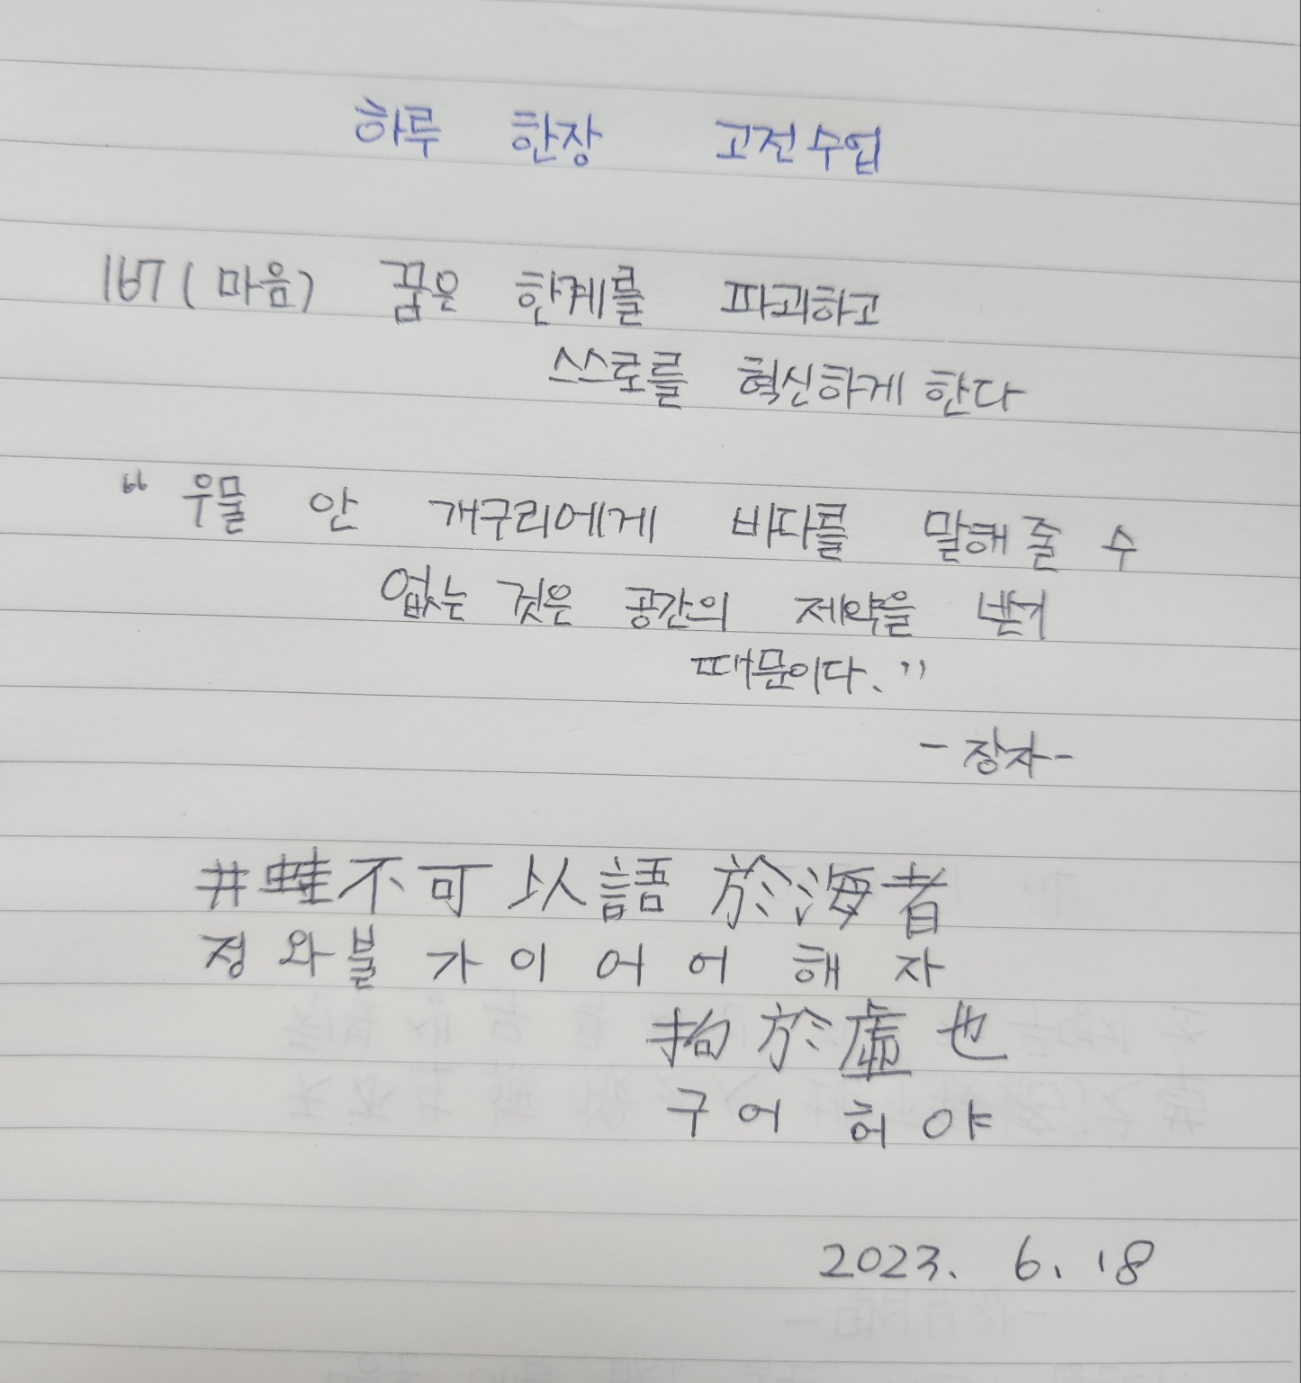 하루 한장 고전수업
167 (마음) 꿈은 한계를 파괴하고
스스로를 혁신하게 한다
“우물 안 개구리에게 바다를 말해 줄 수
없는 것은 공간의 제약을 받기
때문이다.”
-장자-
井蛙不可以語於海者
정와불가이어어해자
拘於虛也
구어허야
2023. 6. 18